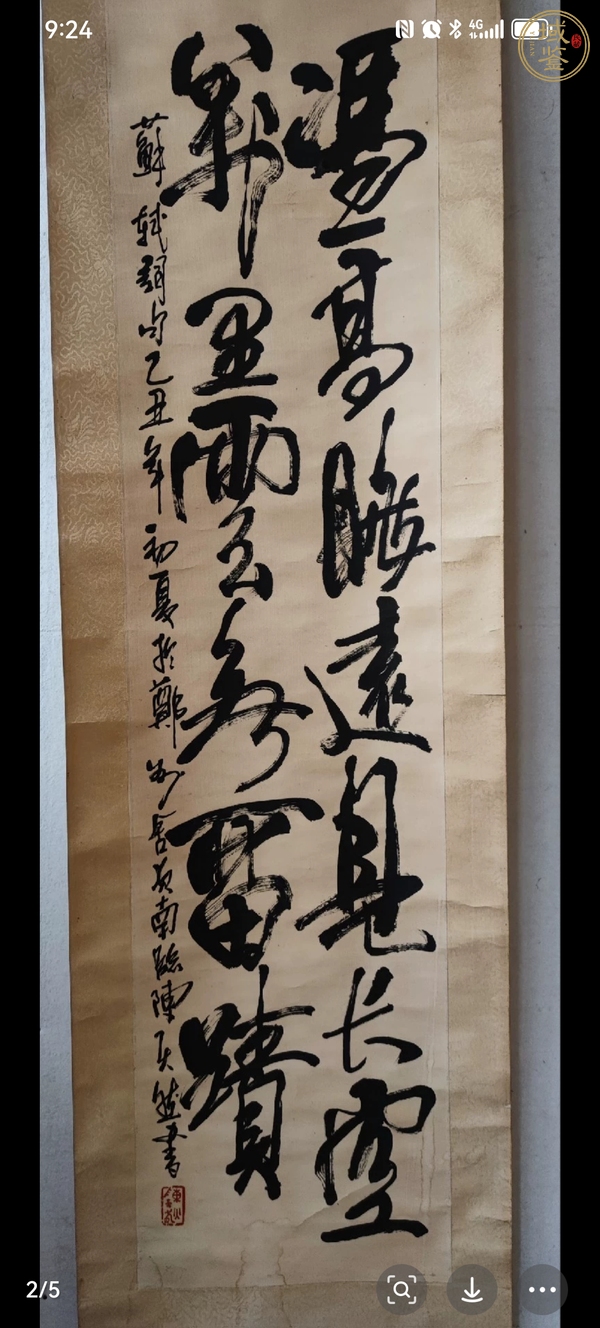 9:24
4G
憑高眺遠見长空
萬里雲無留蹟
蘇軾詞句乙丑年初夏於鄭州南陳天然書
域鉴
2/5